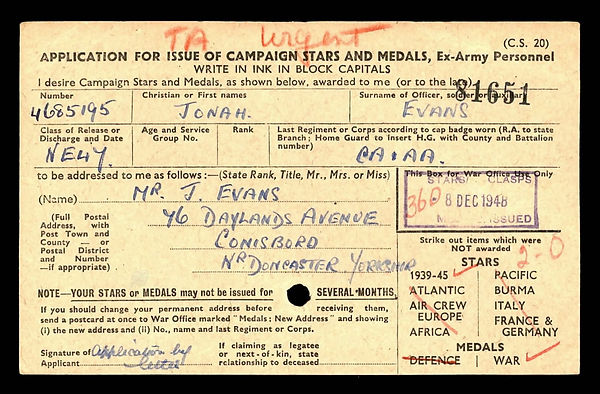 TA Urgent
(C.S. 20)
APPLICATION FOR ISSUE OF CAMPAIGN STARS AND MEDALS, Ex-Army Personnel
WRITE IN INK IN BLOCK CAPITALS
I desire Campaign Stars and Medals, as shown below, awarded to me (or to the late)
81651
Number Christian or First names Surname of Officer, soldier or auxiliary
4685195 JONAH. EVANS
Class of Release or Discharge and Date
Age and Service Group No.
Rank
Last Regiment or Corps according to cap badge worn (R.A. to state
Branch; Home Guard to Insert H.G. with County and Battalion
number)
to be addressed to me as follows:—(State Rank, Title, Mr., Mrs. or Miss)
(Name) MR. J. EVANS
(Full Postal
Address, with
Post Town and
County — or
Postal District
and Number
—if appropriate)
46 DAYLANDS AVENUE
CONISBORO
NR. DONCASTER YORKSHIRE
This Box for War Office Use Only
STARS CLASPS
360
8 DEC 1948
ISSUED
Strike out items which were
NOT awarded
2-0
STARS
1939-45 PACIFIC
ATLANTIC BURMA
AIR CREW EUROPE ITALY
AFRICA FRANCE & GERMANY
MEDALS
DEFENCE WAR
NOTE—YOUR STARS or MEDALS may not be issued for SEVERAL MONTHS.
If you should change your permanent address before receiving them,
send a postcard at once to War Office marked "Medals: New Address" and showing
(i) the new address and (ii) No., name and last Regiment or Corps.
Signature of Applicant
Application by
letter
If claiming as legatee
or next-of-kin, state
relationship to deceased